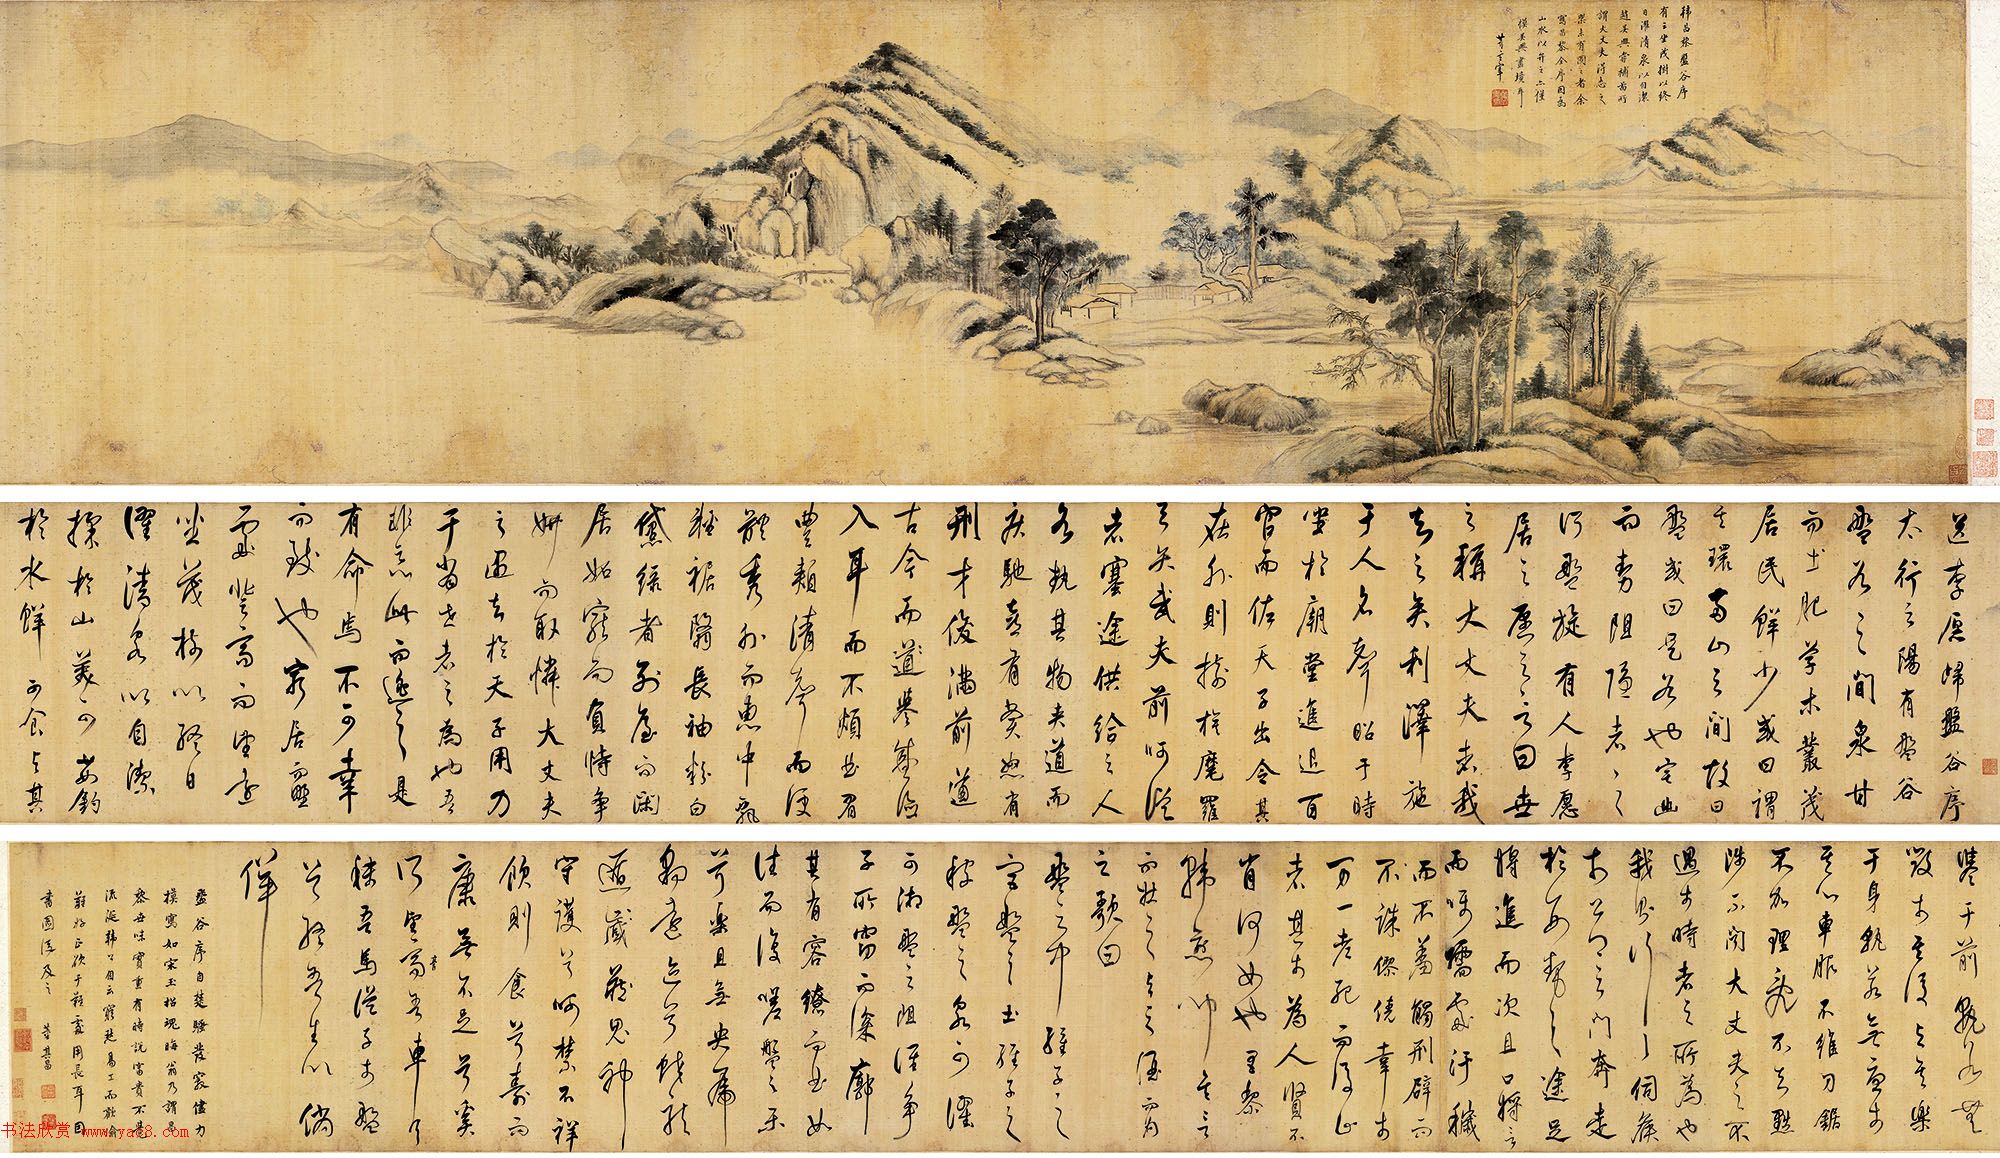 韓昌黎盤谷序
有云坐茂樹以終
日濯清泉以自潔
趙吳興嘗補圖所
謂大丈夫得志之
樂未有圖之者余
寫昌黎全序因為
山水以弁之亦僅
摸吳興畫境耳
董玄宰
送李愿歸盤谷序
太行之陽有盤谷
盤谷之間泉甘
而土肥草木叢茂
居民鮮少或曰謂
其環兩山之間故曰
盤或曰是谷也宅幽
而勢阻隱者之
所盤旋有人李愿
居之愿之言曰世
之稱大丈夫者我
知之矣利澤施
于人名聲昭于時
坐於廟堂進退百
官而佐天子出令其
在外則樹旗麾羅
弓矢武夫前呵從
者塞途供給之人
各執其物夾道而
疾馳喜有賞怒有
刑才俊滿前道
古今而譽盛德
入耳而不煩曲眉
豐頰清聲而便
體秀外而惠中飄
輕裾翳長袖粉白
黛綠者列屋而閑
居妬寵而負恃爭
妍而取憐大丈夫
之遇知於天子用力
于當世者之為也吾
非惡此而逃之是
有命焉不可幸
而致也窮居而野
處升高而望遠
坐茂樹以終日
濯清泉以自潔
採於山美可茹釣
於水鮮可食與其
譽于前孰若無
毀於其後與其樂
于身孰若無憂於
其心車服不維刀鋸
不加理亂不知黜
陟不聞大丈夫之不
遇於時者之所為也
我則行之伺侯
於公卿之門奔走
於形勢之途足
將進而次且口將言
而囁嚅處汙穢
而不羞觸刑辟而
不誅僇僥幸於
万一老死而後止
者其於為人賢不
肖何如也昌黎
韓愈聞其言
而壯之與之酒而為
之歌曰
盤之中維子之
宮盤之土維子之
稼盤之泉可濯
可湘盤之阻誰爭
子所窈而深廓
其有容繚而曲如
往而復嗟盤之樂
兮樂且無央虎
豹遠迹兮蛟龍
遁藏鬼神
守護兮呵禁不祥
飲則食兮壽而
康無不足兮奚
所望膏吾車兮
秣吾馬從子於盤
兮終吾生以徜
徉
盤谷序自楚騷發窾儘力
摸寫如宋玉招魂晦翁乃謂昌
黎世味實重有時說富貴不覺
流涎韓公自云窮愁易工而歡愉
難好正欲于難處用長耳因
書圖後及之 董其昌
书法欣赏 www.yac8.com